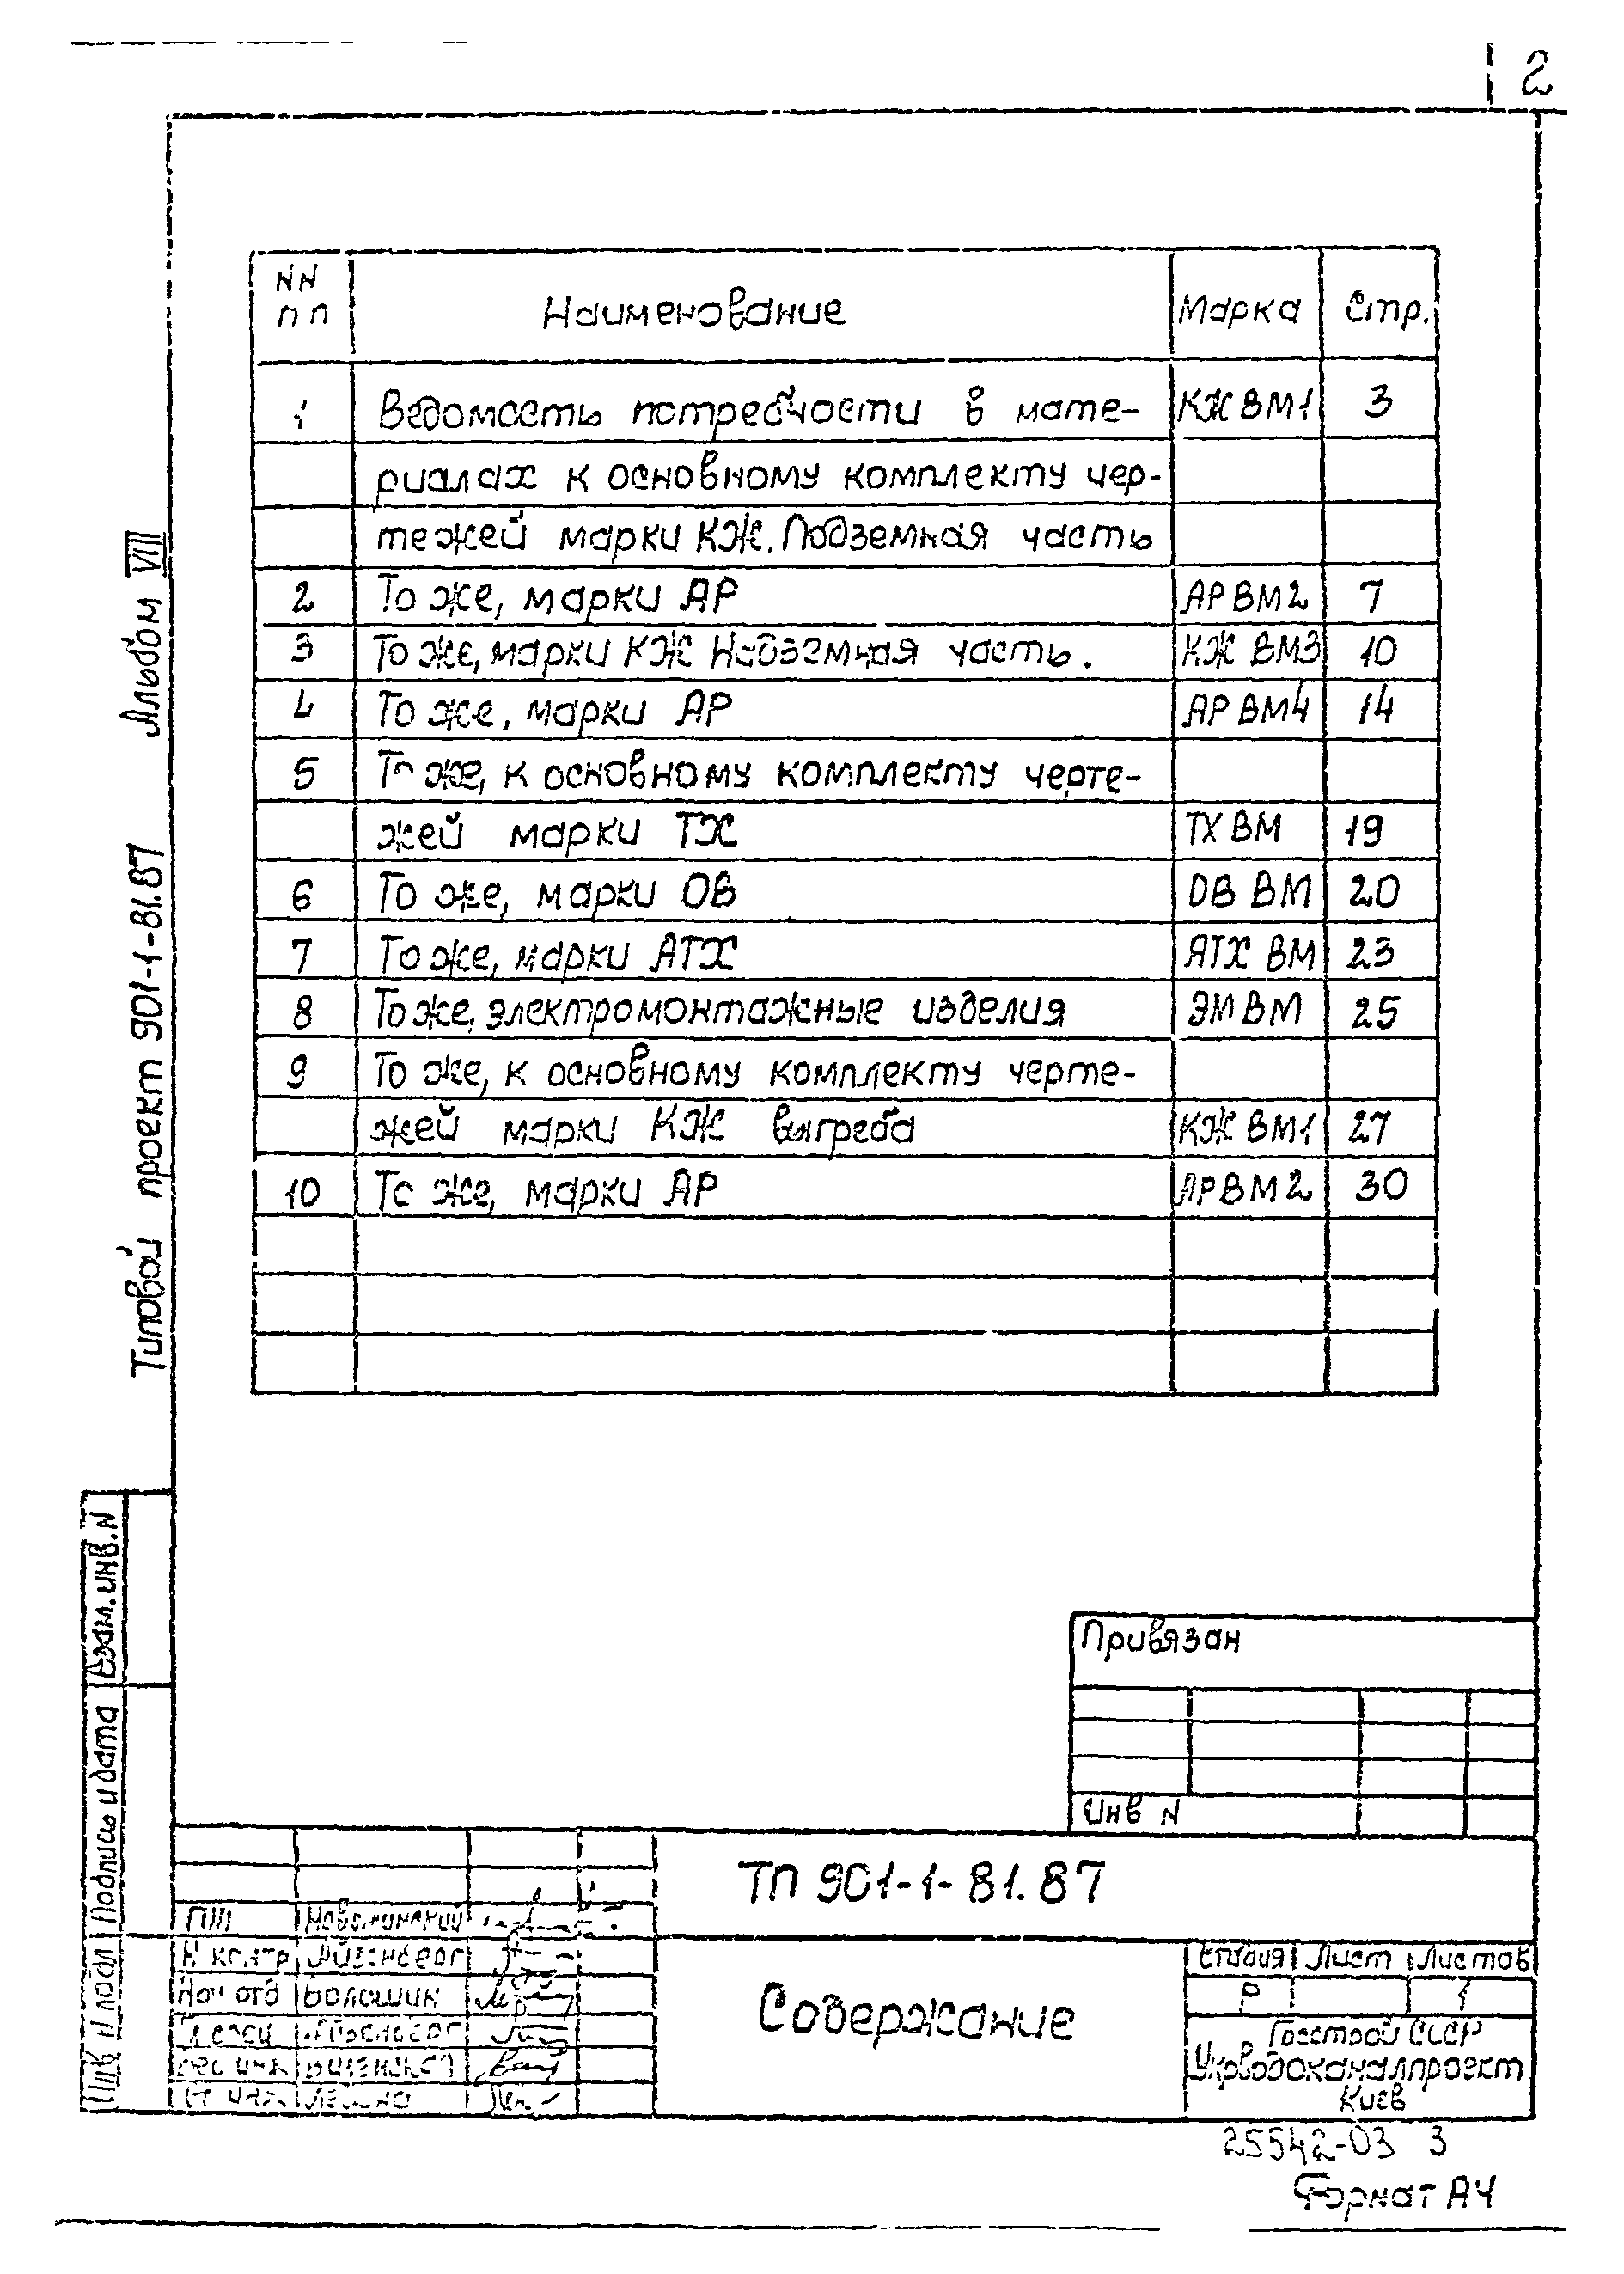 2
NN Наименование Марка Стр.
пп
1 Ведомость потребности в мате- КЖ ВМ1 3
риалах к основному комплекту чер-
тежей марки КЖ. Подземная часть
2 То же, марки АР АР ВМ2 7
3 То же, марки КЖ Надземная часть. КЖ ВМ3 10
4 То же, марки АР АР ВМ4 14
5 То же, к основному комплекту черте-
жей марки ТХ ТХ ВМ 19
6 То же, марки ОВ ОВ ВМ 20
7 То же, марки АТХ АТХ ВМ 23
8 То же, электромонтажные изделия ЭМ ВМ 25
9 То же, к основному комплекту черте-
жей марки КЖ выгреба КЖ ВМ1 27
10 То же, марки АР АР ВМ2 30
Типовой проект 901-1-81.87 Альбом VIII
Взам. инв. N
Подпись и дата
Инв N подл
Привязан
Инв N
ТП 901-1-81.87
ГИП
Н контр
Нач отд Волошин
Содержание
Стадия Лист Листов
Р 1
Госстрой СССР
Укрводоканалпроект
Киев
25542-03 3
Формат А4